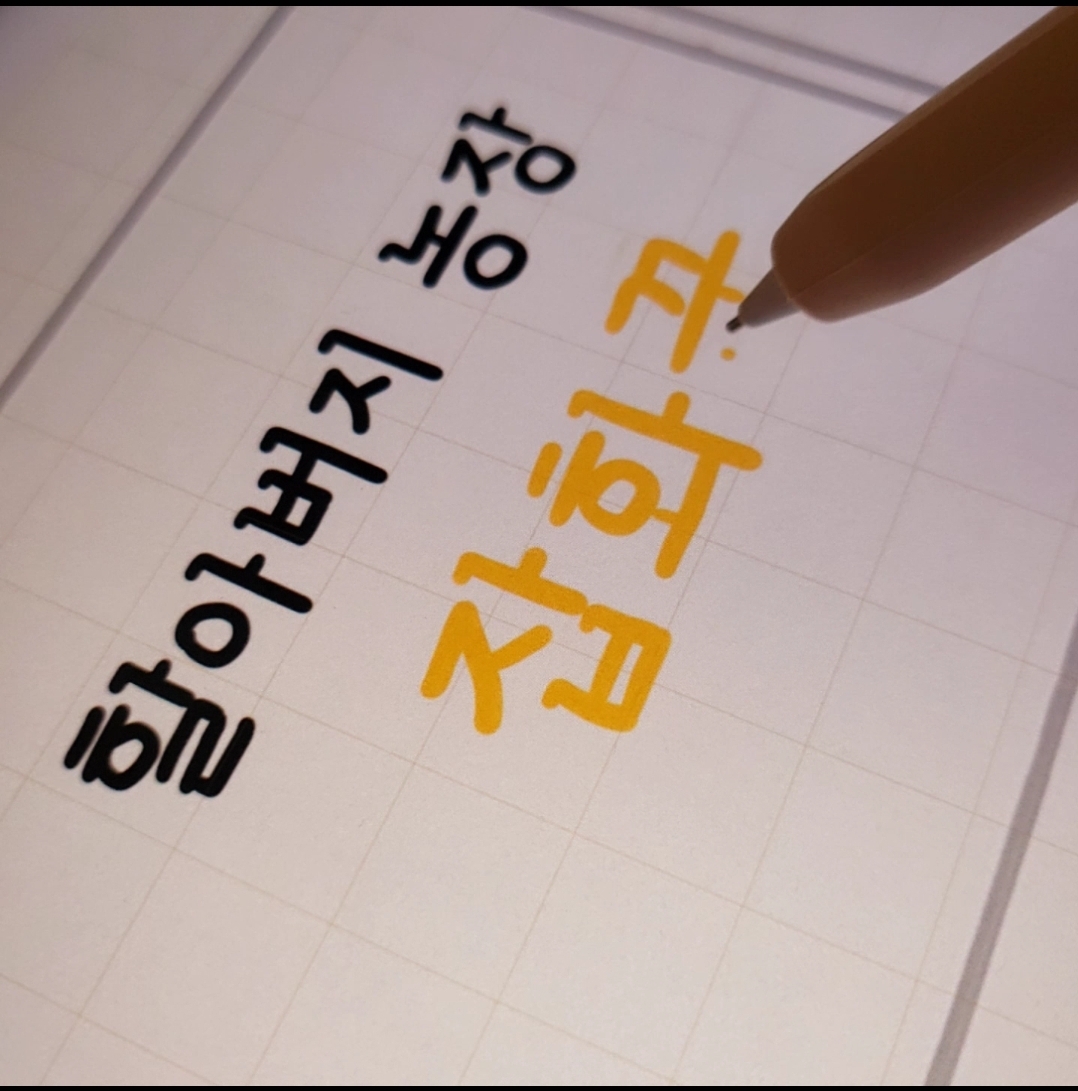 할아버지 농장
잡화꾸